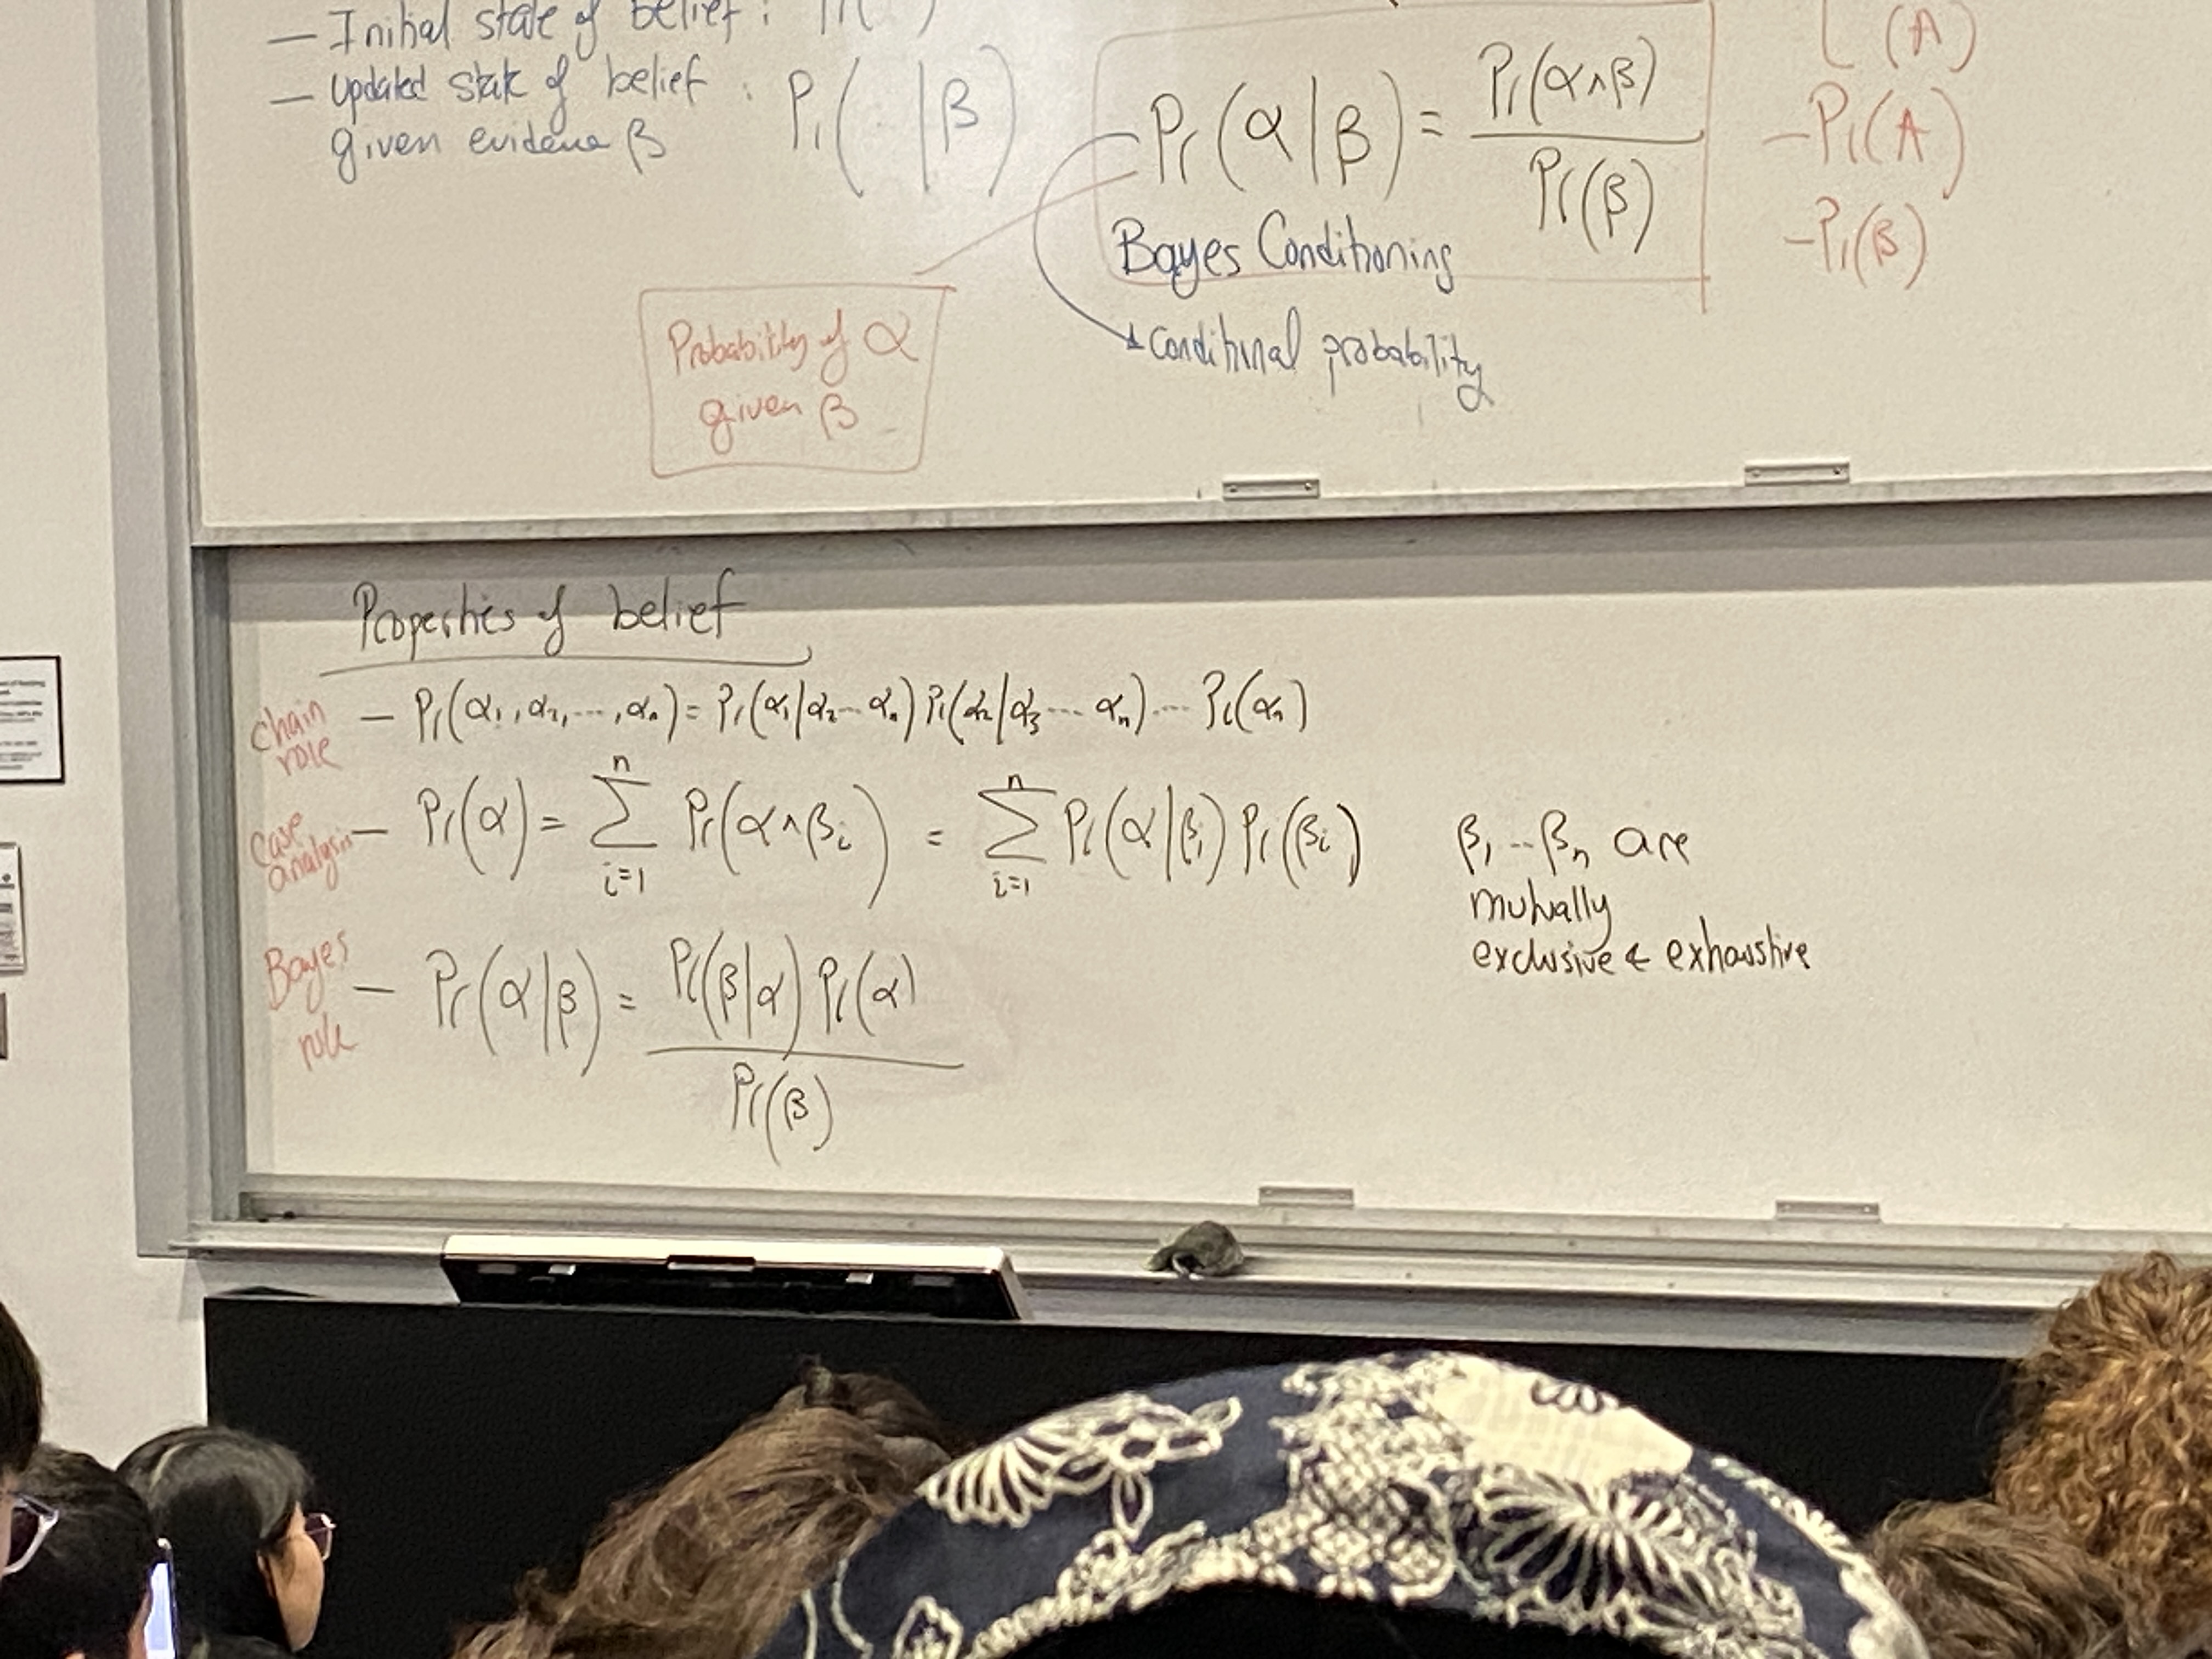 — Initial state of belief : Pr( )
— Updated state of belief : Pr( | β)
given evidence β
Pr(α | β) = Pr(α ∧ β) / Pr(β)
Bayes Conditioning
Conditional probability
Probability of α
given β
(A)
– Pr(A)
– Pr(β)
Properties of belief
chain role — Pr(α₁, α₂, ..., αₙ) = Pr(α₁ | α₂ ... αₙ) Pr(α₂ | α₃ ... αₙ) ... Pr(αₙ)
case analysis — Pr(α) = Σ i=1 n Pr(α ∧ βᵢ) = Σ i=1 n Pr(α | βᵢ) Pr(βᵢ)
β₁ ... βₙ are
mutually
exclusive & exhaustive
Bayes rule — Pr(α | β) = Pr(β | α) Pr(α) / Pr(β)